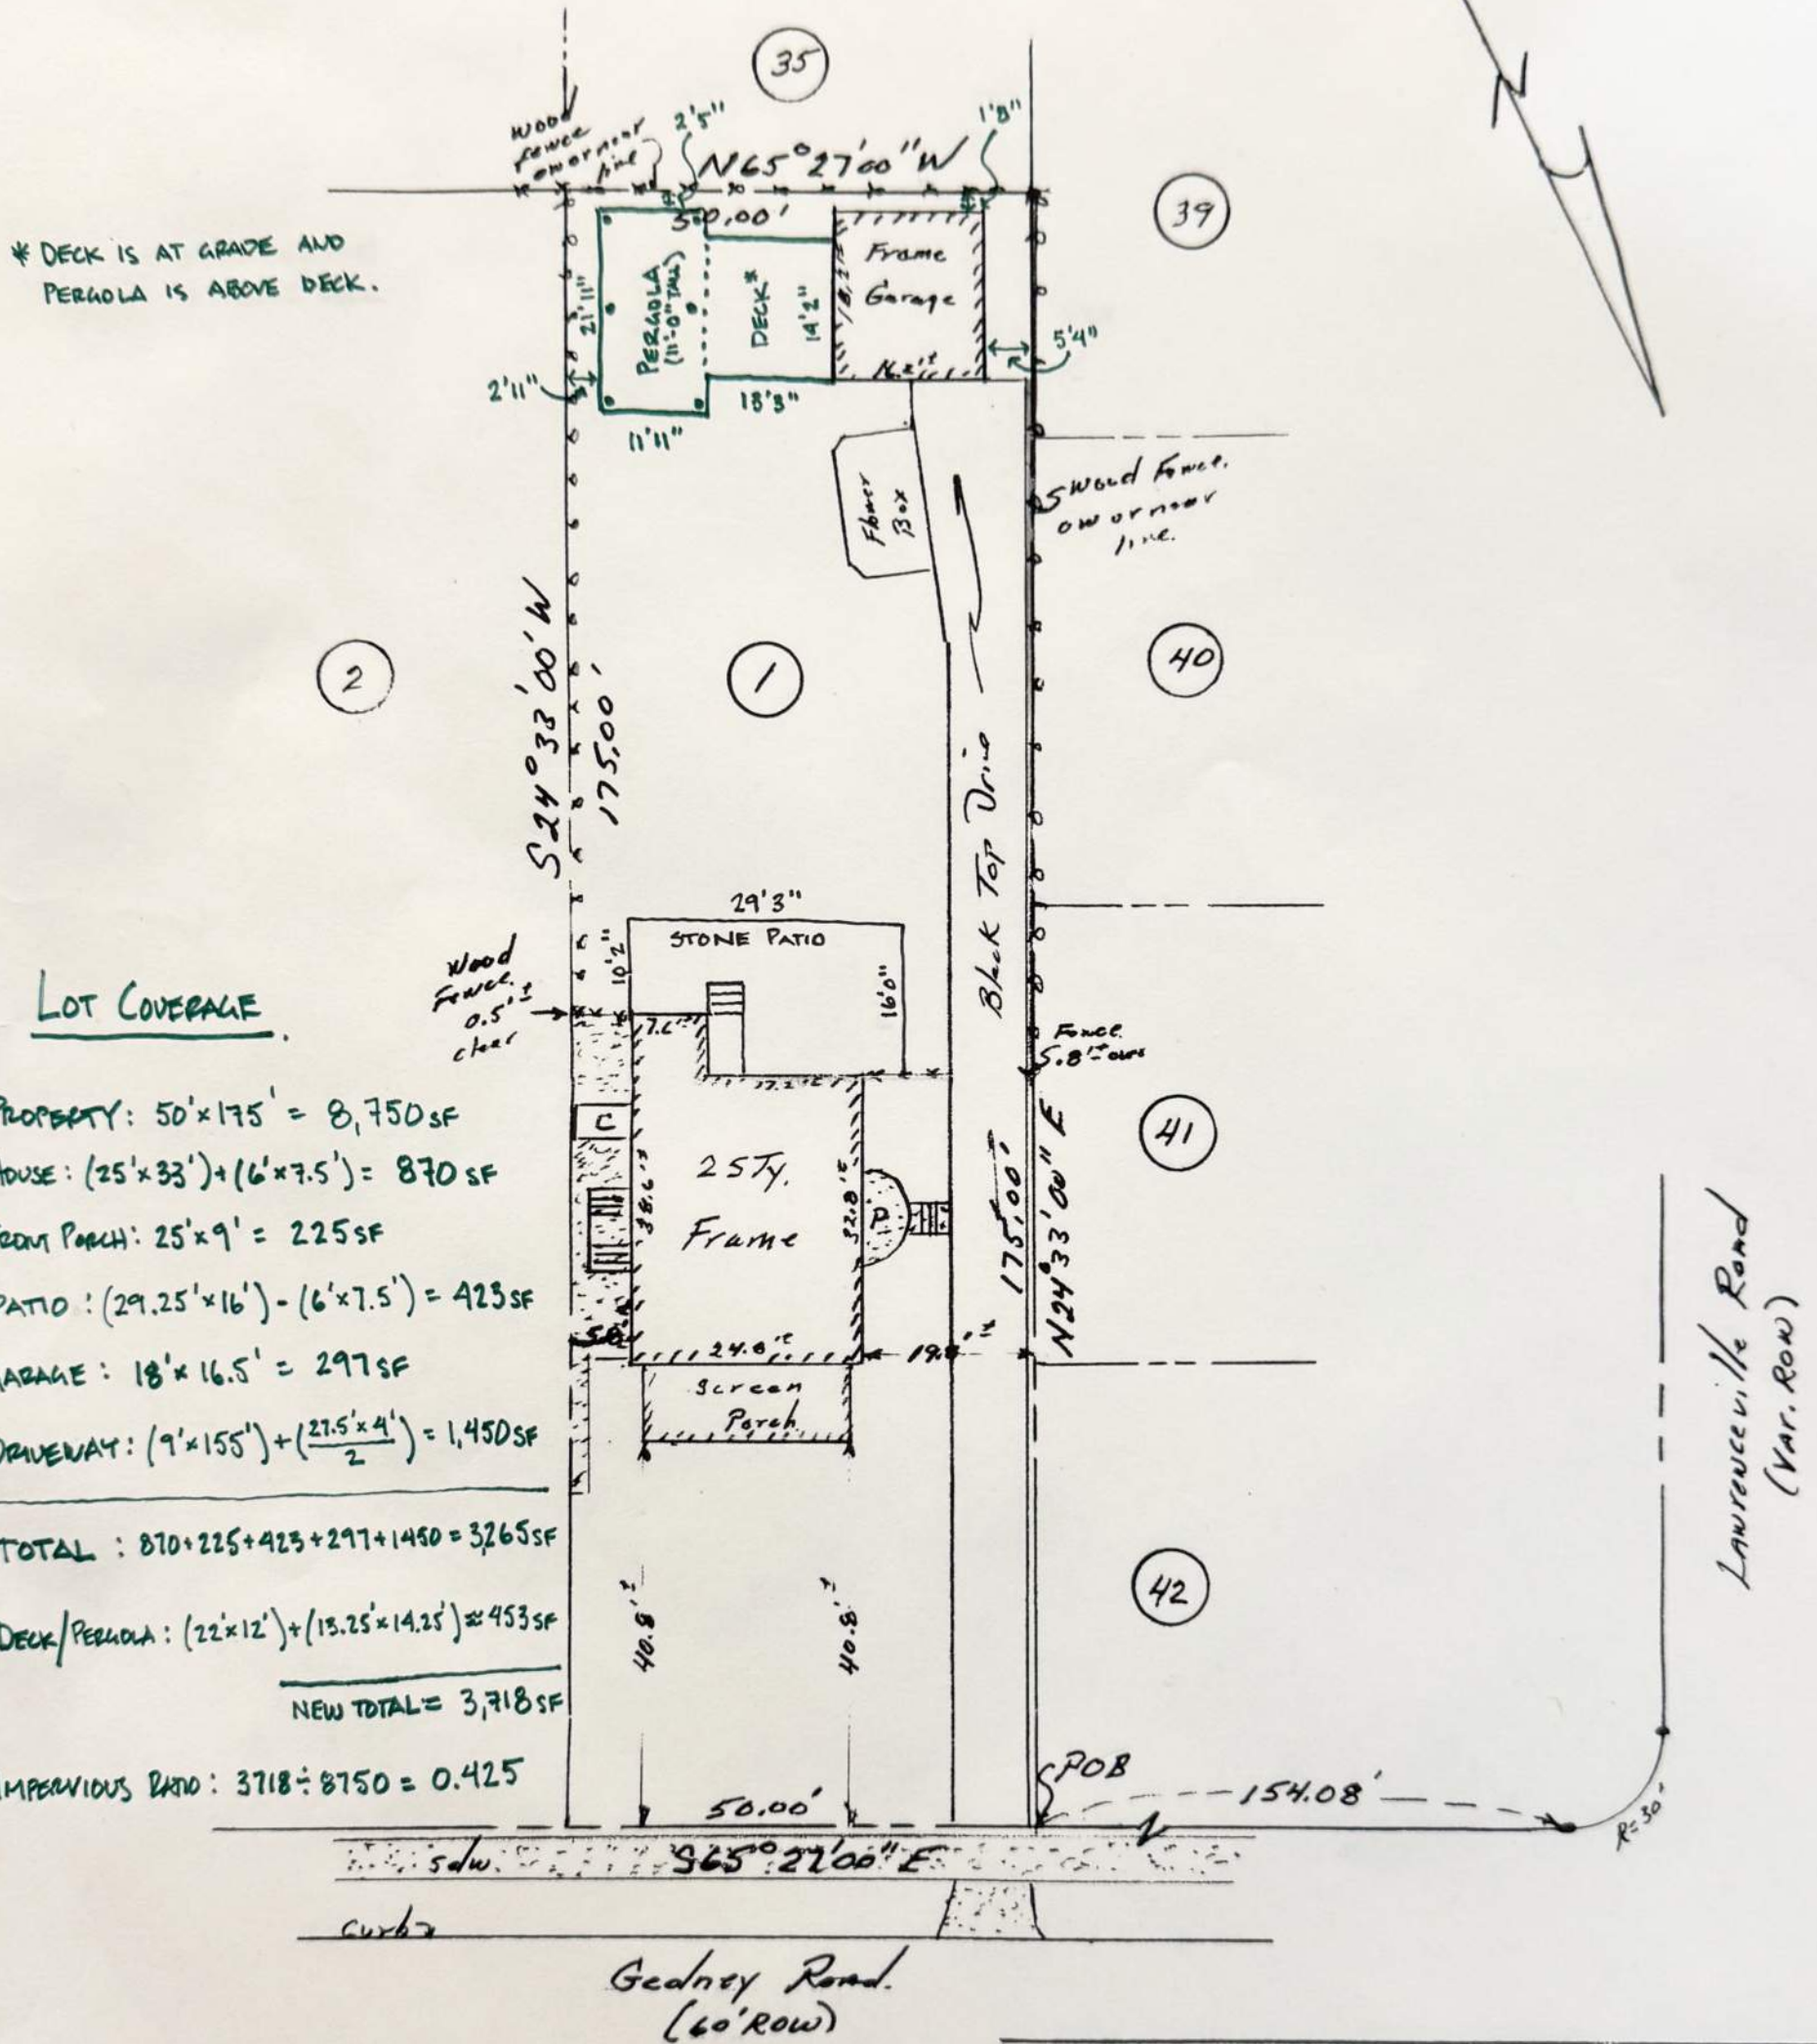 35
wood
fence
on or near
line
2'5"
1'8"
N65°27'00"W
50.00'
39
* DECK IS AT GRADE AND
PERGOLA IS ABOVE DECK.
21'11"
PERGOLA
(11'-0" TALL)
DECK*
14'2"
Frame
Garage
18.2'±
16.2'±
5'4"
2'11"
13'3"
11'11"
Flower
Box
Wood Fence.
on or near
line.
2
1
40
S24°33'00"W
175.00'
Black Top Drive
29'3"
STONE PATIO
10'2"
16'0"
Wood
Fence.
0.5'±
clear
7.6'±
17.2'±
Fence.
5.8'± over
C
2 STy.
Frame
38.6'±
32.8'±
P
41
175.00'
N24°33'00"E
24.8'±
Screen
Porch
40.8'±
40.8'±
42
LOT COVERAGE
PROPERTY: 50'x175' = 8,750 SF
HOUSE: (25'x33')+(6'x7.5') = 870 SF
FRONT PORCH: 25'x9' = 225 SF
PATIO: (29.25'x16')-(6'x7.5') = 423 SF
GARAGE: 18'x16.5' = 297 SF
DRIVEWAY: (9'x155')+(27.5'x4'/2) = 1,450 SF
TOTAL: 870+225+423+297+1450 = 3,265 SF
DECK/PERGOLA: (22'x12')+(13.25'x14.25') ≈ 453 SF
NEW TOTAL = 3,718 SF
IMPERVIOUS RATIO: 3718÷8750 = 0.425
POB
154.08'
R=30'
50.00'
S65°27'00"E
sdw.
curb
Gedney Road.
(60' ROW)
Lawrenceville Road
(VAr. ROW)
N